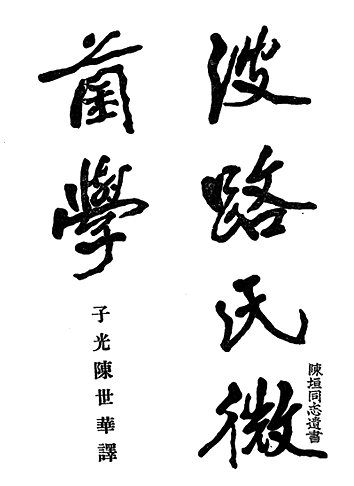 波路氏微
菌學
子光陳世華譯
陳垣同志遺書